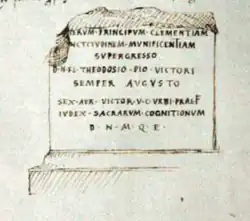 ERVM · PRINCIPVM · CLEMENTIAM
NCTITVDINEM · MVNIFICENTIAM
SVPERGRESSO
D · N · FL · THEODOSIO · PIO · VICTORI
SEMPER AVGVSTO
SEX · AVR · VICTOR · V · C · VRBI · PRAEF
IVDEX · SACRARVM · COGNITIONVM
D · N · M · Q · E ·